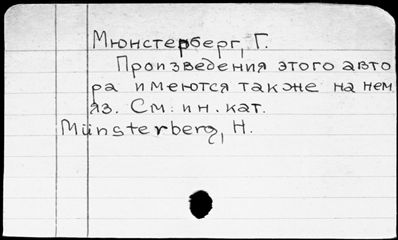 Мюнстерберг, Г.
Произведения этого авто
ра имеются также на нем
яз. См. ин. кат.
Münsterberg, H.